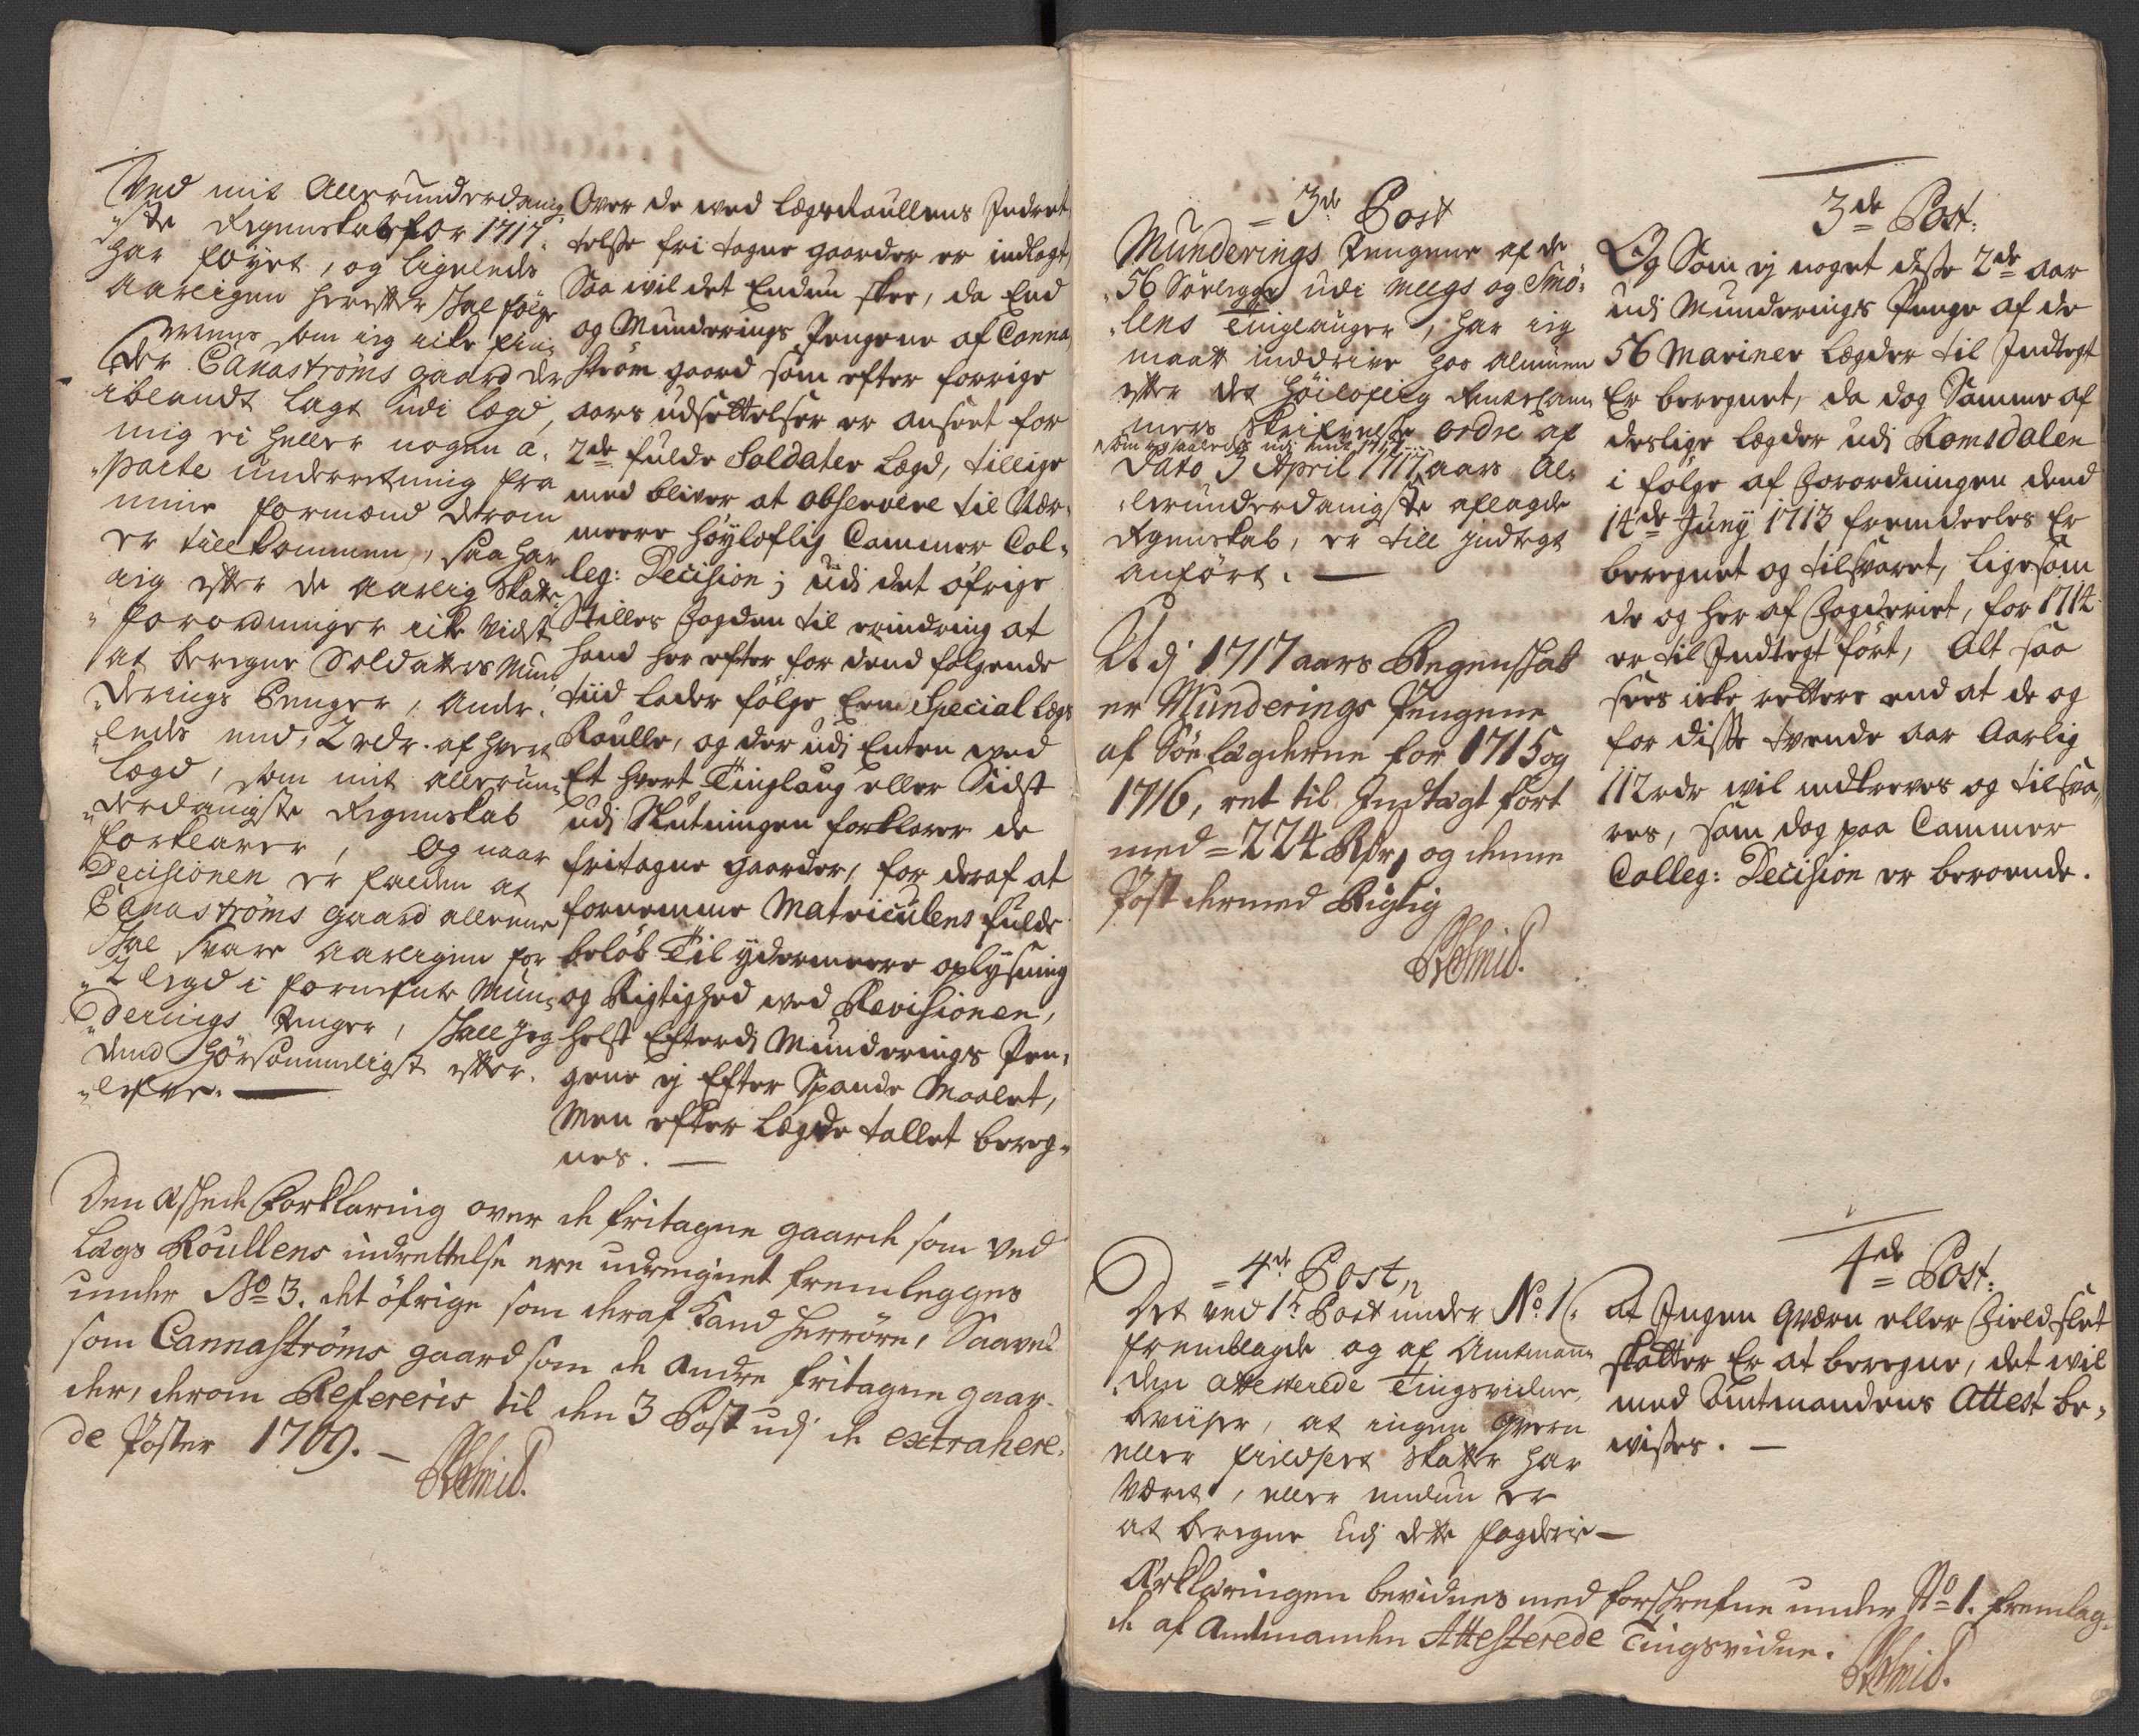 Ved mit Allerunderdanig,
„ste Regenskab for 1717.
har föyet, og ligeleds
Aarligen herefter skal følge
Mens som ieg icke fin,
der Canaströms gaard der
iblandt lagt udi lægd,
mig ei heller nogen a,
„parte underretning fra
mine formænd derom
er tillkommen, saa har
ieg efter de Aarlig Skatte
„forordninger icke vidst
at beregne Soldatters Mun,
„derings Penger, Ander,
„leds end, 2 rdr. af hvert
Lægd, som mit allerun,
„derdanigste Regenskab
forklarer, Og naar
Decisionen er falden at
Canaströms gaard allene
skal svare Aarligen for
2 legd i formente Mun,
„derings Penger, skall jeg
dend hörsommeligst efter,
„lefve.
Over de ved Lægs Roullens Indret
telse fri tagne gaarder er indlagt,
Saa vil det Endnu skee, da End
og Munderings Pengene af Canna,
ström gaard som efter forrige
aars udsettelser er anseet for
2de fulde Soldater Lægd, tillige
med bliver at observere til Nær,
mere Höyloflig Cammer Col,
leg: Decision; udi det öfrige
Stilles Fogden til erindring at
hand her efter for dend følgende
tiid lader følge Een Special Lægs
Roulle, og der udi Enten ved
Et hvert Tinglaug eller Sidst
udi Slutningen forklarer de
fritagne gaarder, for deraf at
fornemme Matriculens fulde
beløb Til ydermeere oplysning
og Rigtighed ved Revisionen,
helst Efterdi Munderings Pen,
gene ej Efter Spande Maalet,
Men efter Lægde tallet bereg,
nes.
Den Æskede Forklaring over de fritagne gaarde som ved
Lægs Roullens indrettelse ere udreignet fremlegges
under No 3. det öfrige som deraf kand herröre, Saavel
som Cannaströms gaard som de andre fritagne gaar-
der, derom Refereris til den 3 Post udj de extrahere,
de Poster 1709.
RSchmid.
3de Post
Munderings Pengene af de
56 Sölegge udi Meegs og Smö,
„lens Tinglauger, har ieg
maatt inddrive hos Almuen
efter det Höilofflig Rentekam
mers Skrifvelse ordre af
Dato 3 April 1717 aars Al,
„lerunderdanigste aflagde
Regenskab, er till Indtegt
anfört.
Udj 1717 aars Regenskab
er Munderings Pengene
af Söelægderne for 1715 og
1716, ret til Indtægt fört
med = 224 Rdr, og denne
Post dermed Rigtig
RSchmid.
3de Post:
Og Som ej noget disse 2de aar
udi Munderings Penge af de
56 Mariner Lægder til Indtegt
Er beregnet, da dog Samme af
deslige Lægder udi Romsdalen
i følge af Forordningen dend
14de Junij 1713 fremdeeles Er
beregnet og tilsvaret, ligesom
de og her af Fogderiet, for 1714
er til Indtegt fört, Alt saa
sees icke rettere end at de og
for disse tvende aar Aarlig
112 rdr vil indkreves og tilsva,
res, som dog paa Cammer
Colleg: Decision er beroende.
4de Post,
Det ved 1te Post under No. 1.
fremblagde og af Amtmann
„den atesterede Tingsvidne,
beviiser, at ingen Qvern
eller fieldslet Skatter har
Værit, eller endnu er
at beregne Udj dette fogderie
4de Post:
At Ingen Qværn eller Fieldslet
skatter Er at beregne, det vil
med Amtmandens Attest be,
vises.
Erklæringen bevidnes med forskrefne under No 1. fremlag,
de af Amtmanden Attesterede Tingsvidne.
RSchmid.